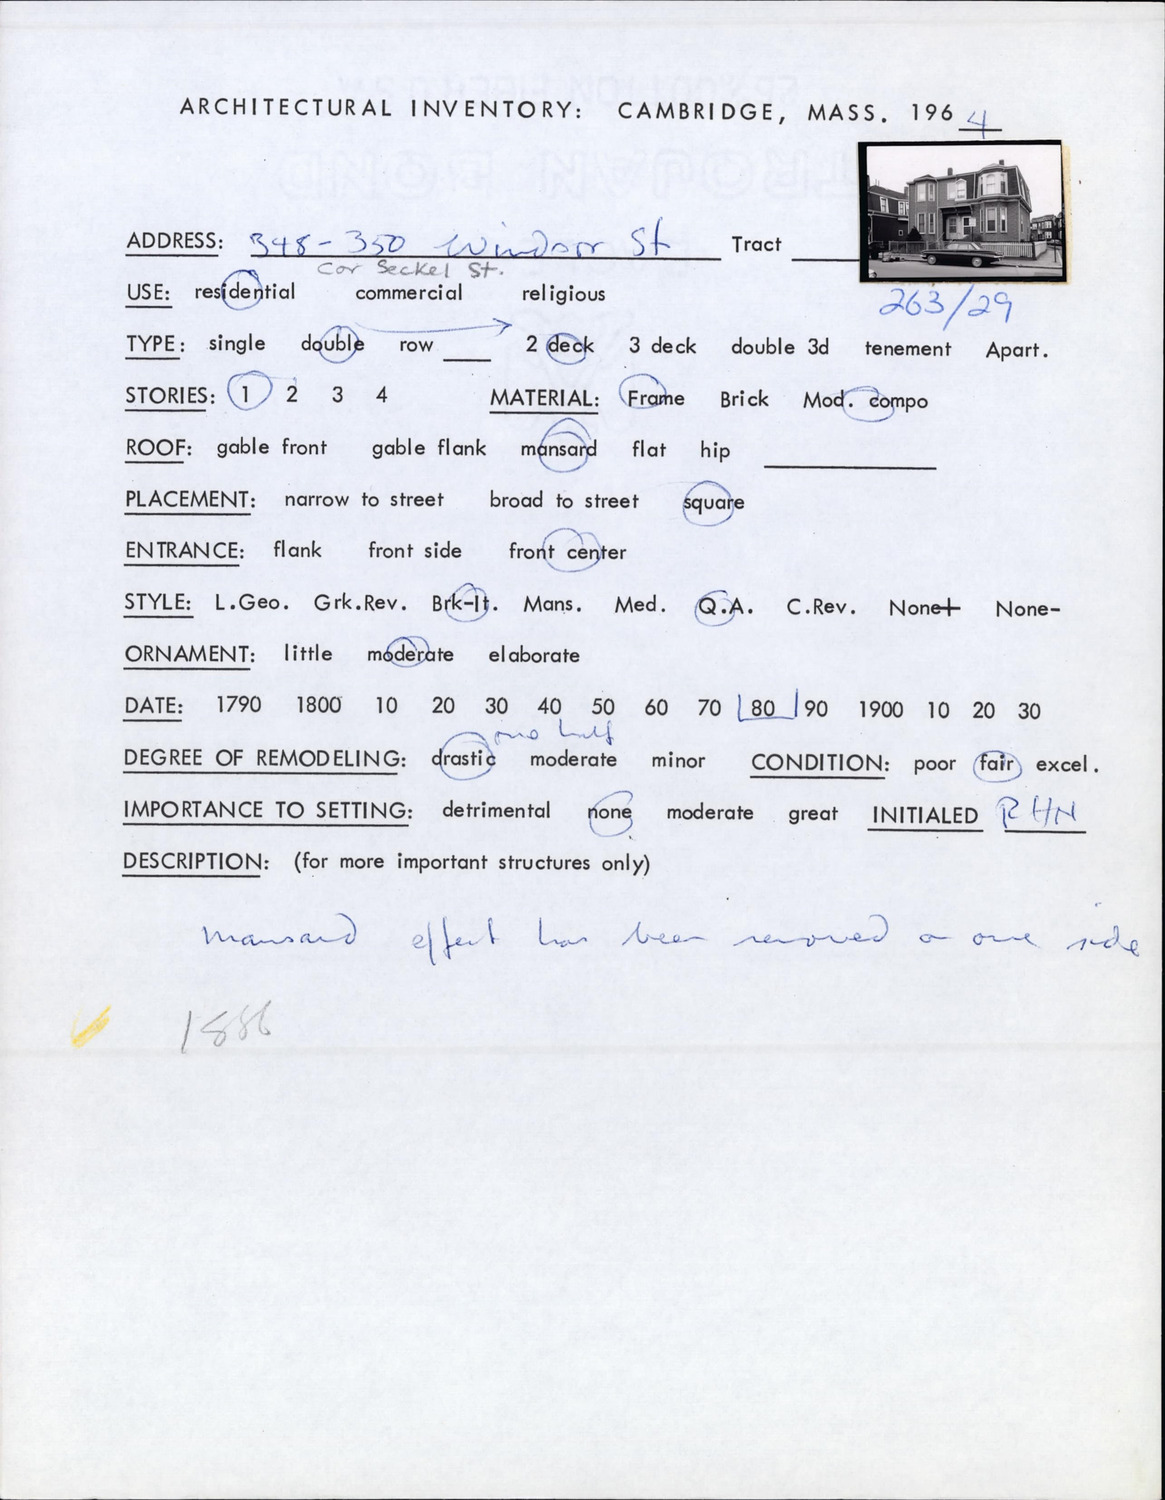 ARCHITECTURAL INVENTORY: CAMBRIDGE, MASS. 196 4
ADDRESS: 348-350 Windsor St Tract
Cor Seckel St.
263/29
USE: residential commercial religious
TYPE: single double row 2 deck 3 deck double 3d tenement Apart.
STORIES: 1 2 3 4 MATERIAL: Frame Brick Mod. compo
ROOF: gable front gable flank mansard flat hip
PLACEMENT: narrow to street broad to street square
ENTRANCE: flank front side front center
STYLE: L.Geo. Grk.Rev. Brk-It. Mans. Med. Q.A. C.Rev. None+ None-
ORNAMENT: little moderate elaborate
DATE: 1790 1800 10 20 30 40 50 60 70 80 90 1900 10 20 30
one half
DEGREE OF REMODELING: drastic moderate minor CONDITION: poor fair excel.
IMPORTANCE TO SETTING: detrimental none moderate great INITIALED RHN
DESCRIPTION: (for more important structures only)
mansard effect has been removed on one side
1886